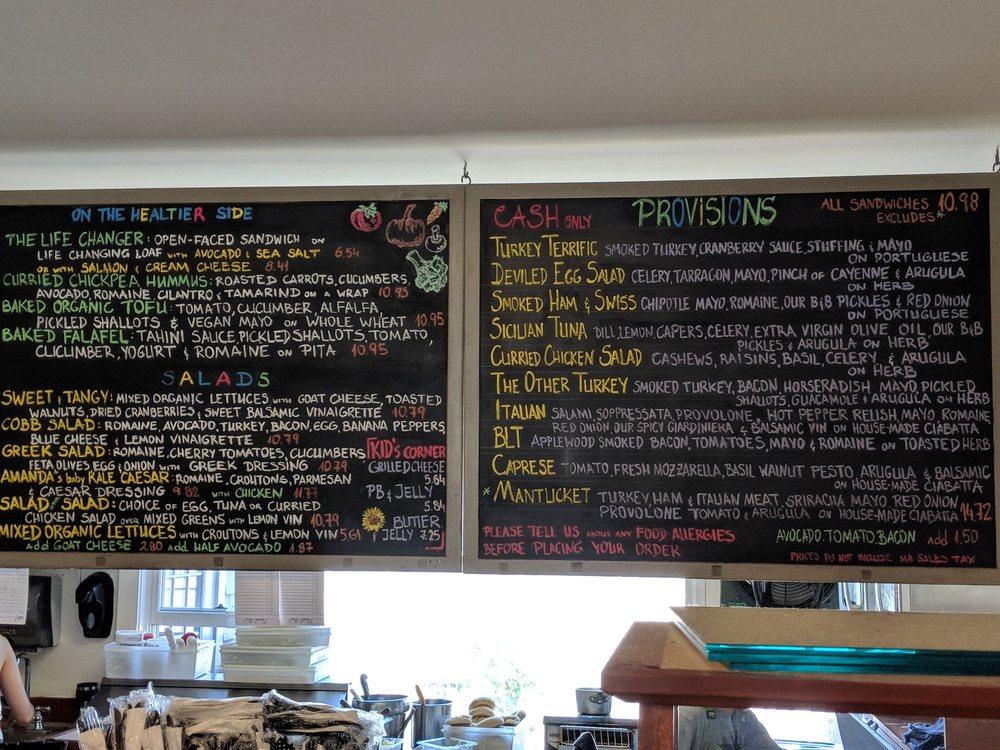 ON THE HEALTIER SIDE
THE LIFE CHANGER: OPEN-FACED SANDWICH ON
LIFE CHANGING LOAF WITH AVOCADO & SEA SALT 6.54
OR WITH SALMON & CREAM CHEESE 8.41
CURRIED CHICKPEA HUMMUS: ROASTED CARROTS, CUCUMBERS,
AVOCADO, ROMAINE, CILANTRO & TAMARIND ON A WRAP 10.95
BAKED ORGANIC TOFU: TOMATO, CUCUMBER, ALFALFA,
PICKLED SHALLOTS & VEGAN MAYO ON WHOLE WHEAT 10.95
BAKED FALAFEL: TAHINI SAUCE, PICKLED SHALLOTS, TOMATO,
CUCUMBER, YOGURT & ROMAINE ON PITA 10.95
SALADS
SWEET & TANGY: MIXED ORGANIC LETTUCES WITH GOAT CHEESE, TOASTED
WALNUTS, DRIED CRANBERRIES & SWEET BALSAMIC VINAIGRETTE 10.79
COBB SALAD: ROMAINE, AVOCADO, TURKEY, BACON, EGG, BANANA PEPPERS,
BLUE CHEESE & LEMON VINAIGRETTE 10.79
GREEK SALAD: ROMAINE, CHERRY TOMATOES, CUCUMBERS
FETA OLIVES EGG & ONION WITH GREEK DRESSING 10.79
AMANDA'S baby KALE CAESAR: ROMAINE, CROUTONS, PARMESAN
& CAESAR DRESSING 9.82 WITH CHICKEN 11.77
SALAD SALAD: CHOICE OF EGG, TUNA OR CURRIED
CHICKEN SALAD OVER MIXED GREENS WITH LEMON VIN 10.79
MIXED ORGANIC LETTUCES WITH CROUTONS & LEMON VIN 5.61
add GOAT CHEESE 2.80 add HALF AVOCADO 1.87
KID'S CORNER
GRILLED CHEESE
5.64
PB & JELLY
5.84
BUTTER
& JELLY 2.25
CASH ONLY
PROVISIONS
ALL SANDWICHES 10.98
EXCLUDES*
TURKEY TERRIFIC SMOKED TURKEY, CRANBERRY SAUCE, STUFFING & MAYO
ON PORTUGUESE
DEVILED EGG SALAD CELERY, TARRAGON, MAYO, PINCH OF CAYENNE & ARUGULA
ON HERB
SMOKED HAM & SWISS CHIPOTLE MAYO, ROMAINE, OUR B&B PICKLES & RED ONION
ON PORTUGUESE
SICILIAN TUNA DILL, LEMON, CAPERS, CELERY, EXTRA VIRGIN OLIVE OIL, OUR B&B
PICKLES & ARUGULA ON HERB
CURRIED CHICKEN SALAD CASHEWS, RAISINS, BASIL, CELERY & ARUGULA
ON HERB
THE OTHER TURKEY SMOKED TURKEY, BACON, HORSERADISH MAYO, PICKLED
SHALLOTS, GUACAMOLE & ARUGULA ON HERB
ITALIAN SALAMI, SOPPRESSATA, PROVOLONE, HOT PEPPER RELISH, MAYO, ROMAINE
RED ONION, OUR SPICY GIARDINIERA & BALSAMIC VIN ON HOUSE-MADE CIABATTA
BLT APPLEWOOD SMOKED BACON, TOMATOES, MAYO & ROMAINE ON TOASTED HERB
CAPRESE TOMATO, FRESH MOZZARELLA, BASIL WALNUT PESTO ARUGULA & BALSAMIC
ON HOUSE-MADE CIABATTA
* MANTUCKET TURKEY, HAM & ITALIAN MEAT, SRIRACHA MAYO RED ONION
PROVOLONE TOMATO & ARUGULA ON HOUSE-MADE CIABATTA 14.72
PLEASE TELL US ABOUT ANY FOOD ALLERGIES
BEFORE PLACING YOUR ORDER
AVOCADO, TOMATO, BACON add 1.50
PRICES DO NOT INCLUDE MA SALES TAX